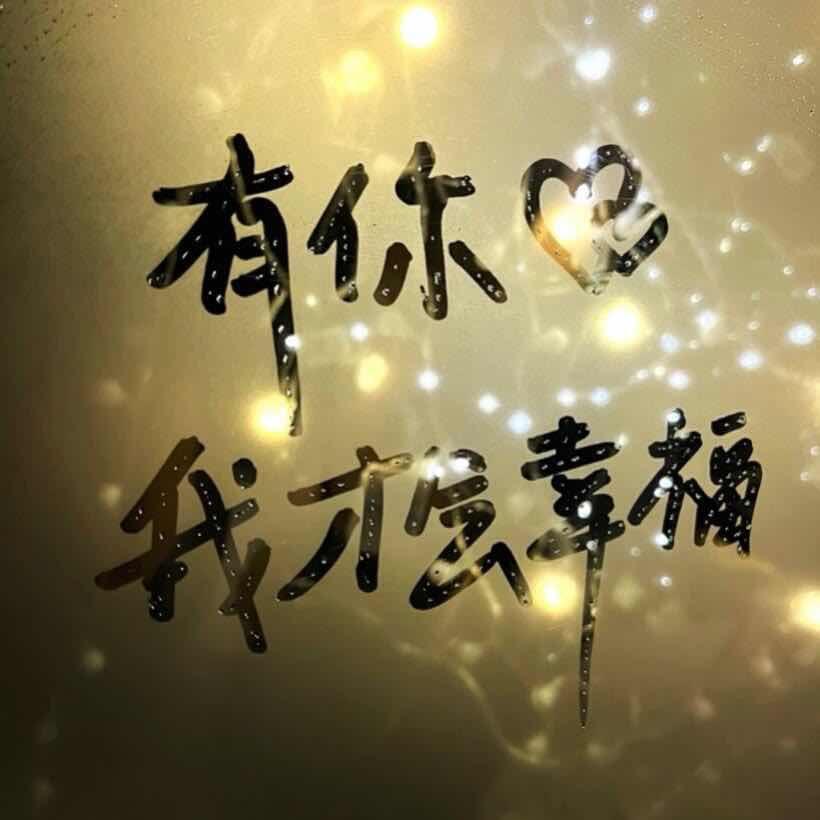 有你
我才会幸福